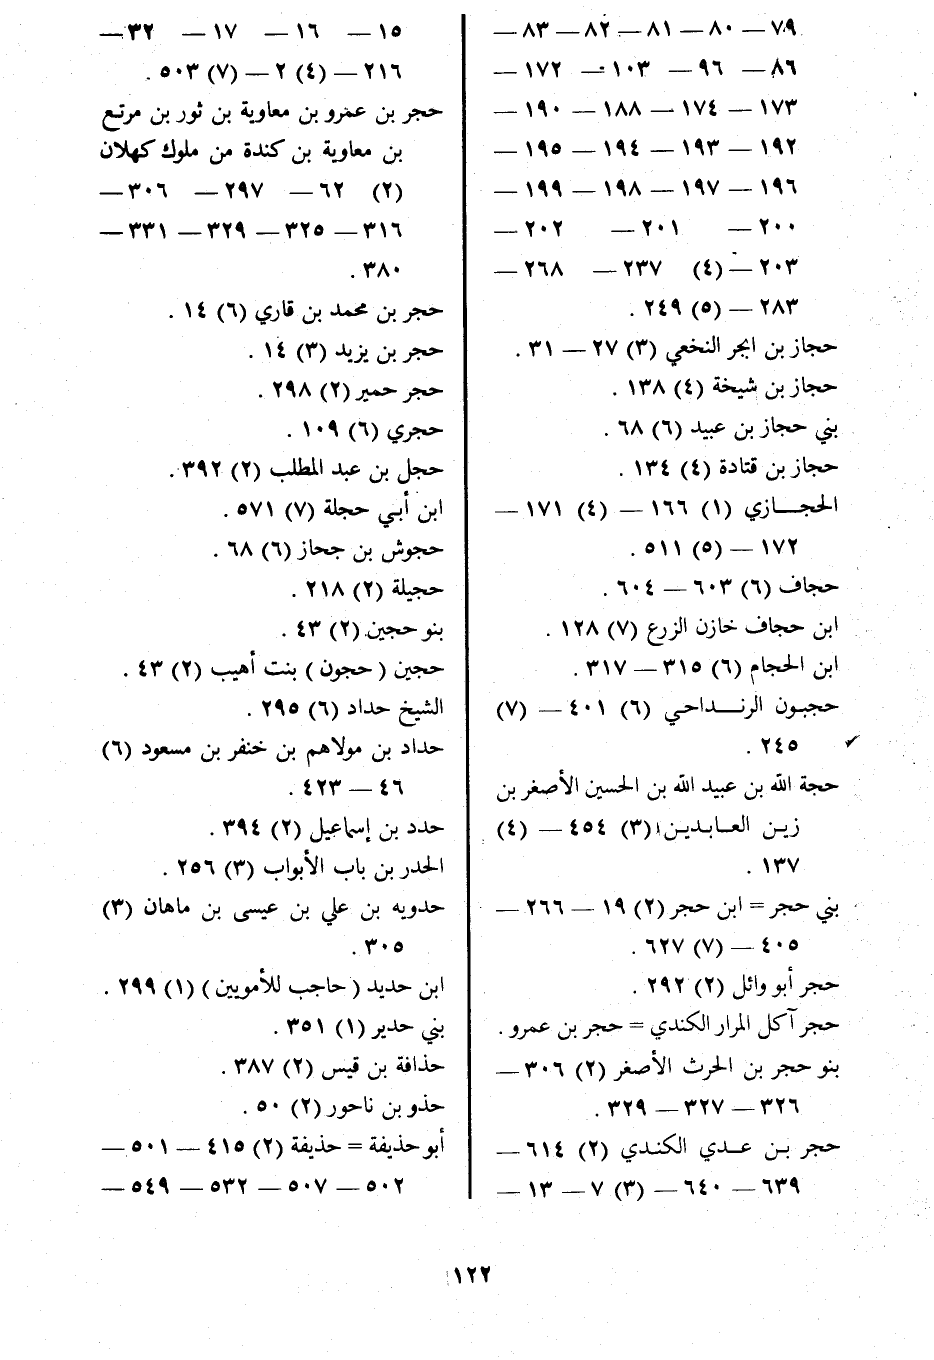 ٧٩ — ٨٠ — ٨١ — ٨٢ — ٨٣ —
٨٦ — ٩٦ — ١٠٣ — ١٧٢ —
١٧٣ — ١٧٤ — ١٨٨ — ١٩٠ —
١٩٢ — ١٩٣ — ١٩٤ — ١٩٥ —
١٩٦ — ١٩٧ — ١٩٨ — ١٩٩ —
٢٠٠ — ٢٠١ — ٢٠٢ —
٢٠٣ — (٤) ٢٣٧ — ٢٦٨ —
٢٨٣ — (٥) ٢٤٩ .
حجاز بن ابجر النخعي (٣) ٢٧ — ٣١ .
حجاز بن شيخة (٤) ١٣٨ .
بني حجاز بن عبيد (٦) ٦٨ .
حجاز بن قتادة (٤) ١٣٤ .
الحجـــازي (١) ١٦٦ — (٤) ١٧١ —
١٧٢ — (٥) ٥١١ .
حجاف (٦) ٦٠٣ — ٦٠٤ .
ابن حجاف خازن الزرع (٧) ١٢٨ .
ابن الحجام (٦) ٣١٥ — ٣١٧ .
حجبون الرنـــداحي (٦) ٤٠١ — (٧)
٢٤٥ .
حجة الله بن عبيد الله بن الحسين الأصغر بن
زيـن العـابـديـن (٣) ٤٥٤ — (٤)
١٣٧ .
بني حجر = ابن حجر (٢) ١٩ — ٢٦٦ —
٤٠٥ — (٧) ٦٢٧ .
حجر أبو وائل (٢) ٢٩٢ .
حجر آكل المرار الكندي = حجر بن عمرو .
بنو حجر بن الحرث الأصغر (٢) ٣٠٦ —
٣٢٦ — ٣٢٧ — ٣٢٩ .
حجر بـن عـدي الكنـدي (٢) ٦١٤ —
٦٣٩ — ٦٤٠ — (٣) ٧ — ١٣ —
١٥ — ١٦ — ١٧ — ٣٢ —
٢١٦ — (٤) ٢ — (٧) ٥٠٣ .
حجر بن عمرو بن معاوية بن ثور بن مرتع
بن معاوية بن كندة من ملوك كهلان
(٢) ٦٢ — ٢٩٧ — ٣٠٦ —
٣١٦ — ٣٢٥ — ٣٢٩ — ٣٣١ —
٣٨٠ .
حجر بن محمد بن قاري (٦) ١٤ .
حجر بن يزيد (٣) ١٤ .
حجر حمير (٢) ٢٩٨ .
حجري (٦) ١٠٩ .
حجل بن عبد المطلب (٢) ٣٩٢ .
ابن أبي حجلة (٧) ٥٧١ .
حجوش بن جحاز (٦) ٦٨ .
حجيلة (٢) ٢١٨ .
بنو حجين (٢) ٤٣ .
حجين ( حجون ) بنت أهيب (٢) ٤٣ .
الشيخ حداد (٦) ٢٩٥ .
حداد بن مولاهم بن خنفر بن مسعود (٦)
٤٦ — ٤٢٣ .
حدد بن إسماعيل (٢) ٣٩٤ .
الحدر بن باب الأبواب (٣) ٢٥٦ .
حدويه بن علي بن عيسى بن ماهان (٣)
٣٠٥ .
ابن حديد ( حاجب للأمويين ) (١) ٢٩٩ .
بني حدير (١) ٣٥١ .
حذافة بن قيس (٢) ٣٨٧ .
حذو بن ناحور (٢) ٥٠ .
أبو حذيفة = حذيفة (٢) ٤١٥ — ٥٠١ —
٥٠٢ — ٥٠٧ — ٥٣٢ — ٥٤٩ —
١٢٢